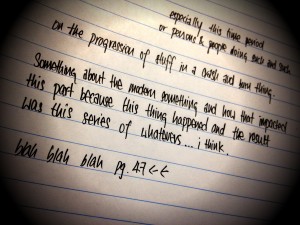 especially this time period
or persons & people doing such and such
on the progression of stuff in a and how thing
Something about the modern something and how that impacted
this part because this thing happened and the result
was this series of whatevers... i think.
blah blah blah pg. 47 <- <-